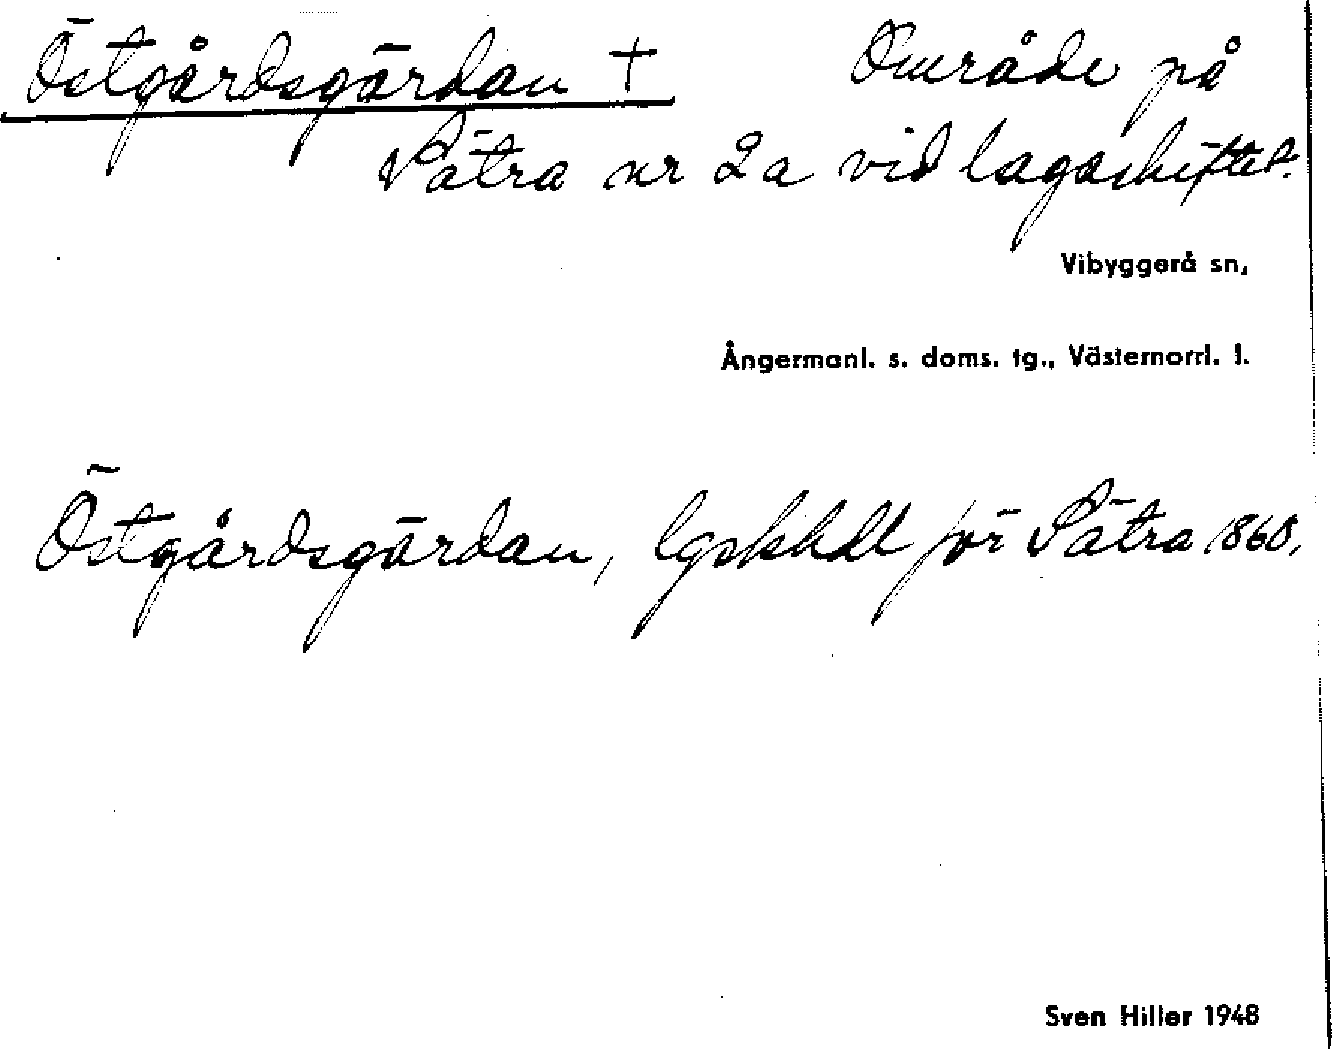 Östgårdsgärdan + Område på
Pätra nr 2a vid lagaskiftet.
Vibyggerå sn,
Ångermanl. s. doms. tg., Västernorrl. l.
Östgårdsgärdan, lgskhdl för Pätra 1860.
Sven Hiller 1948